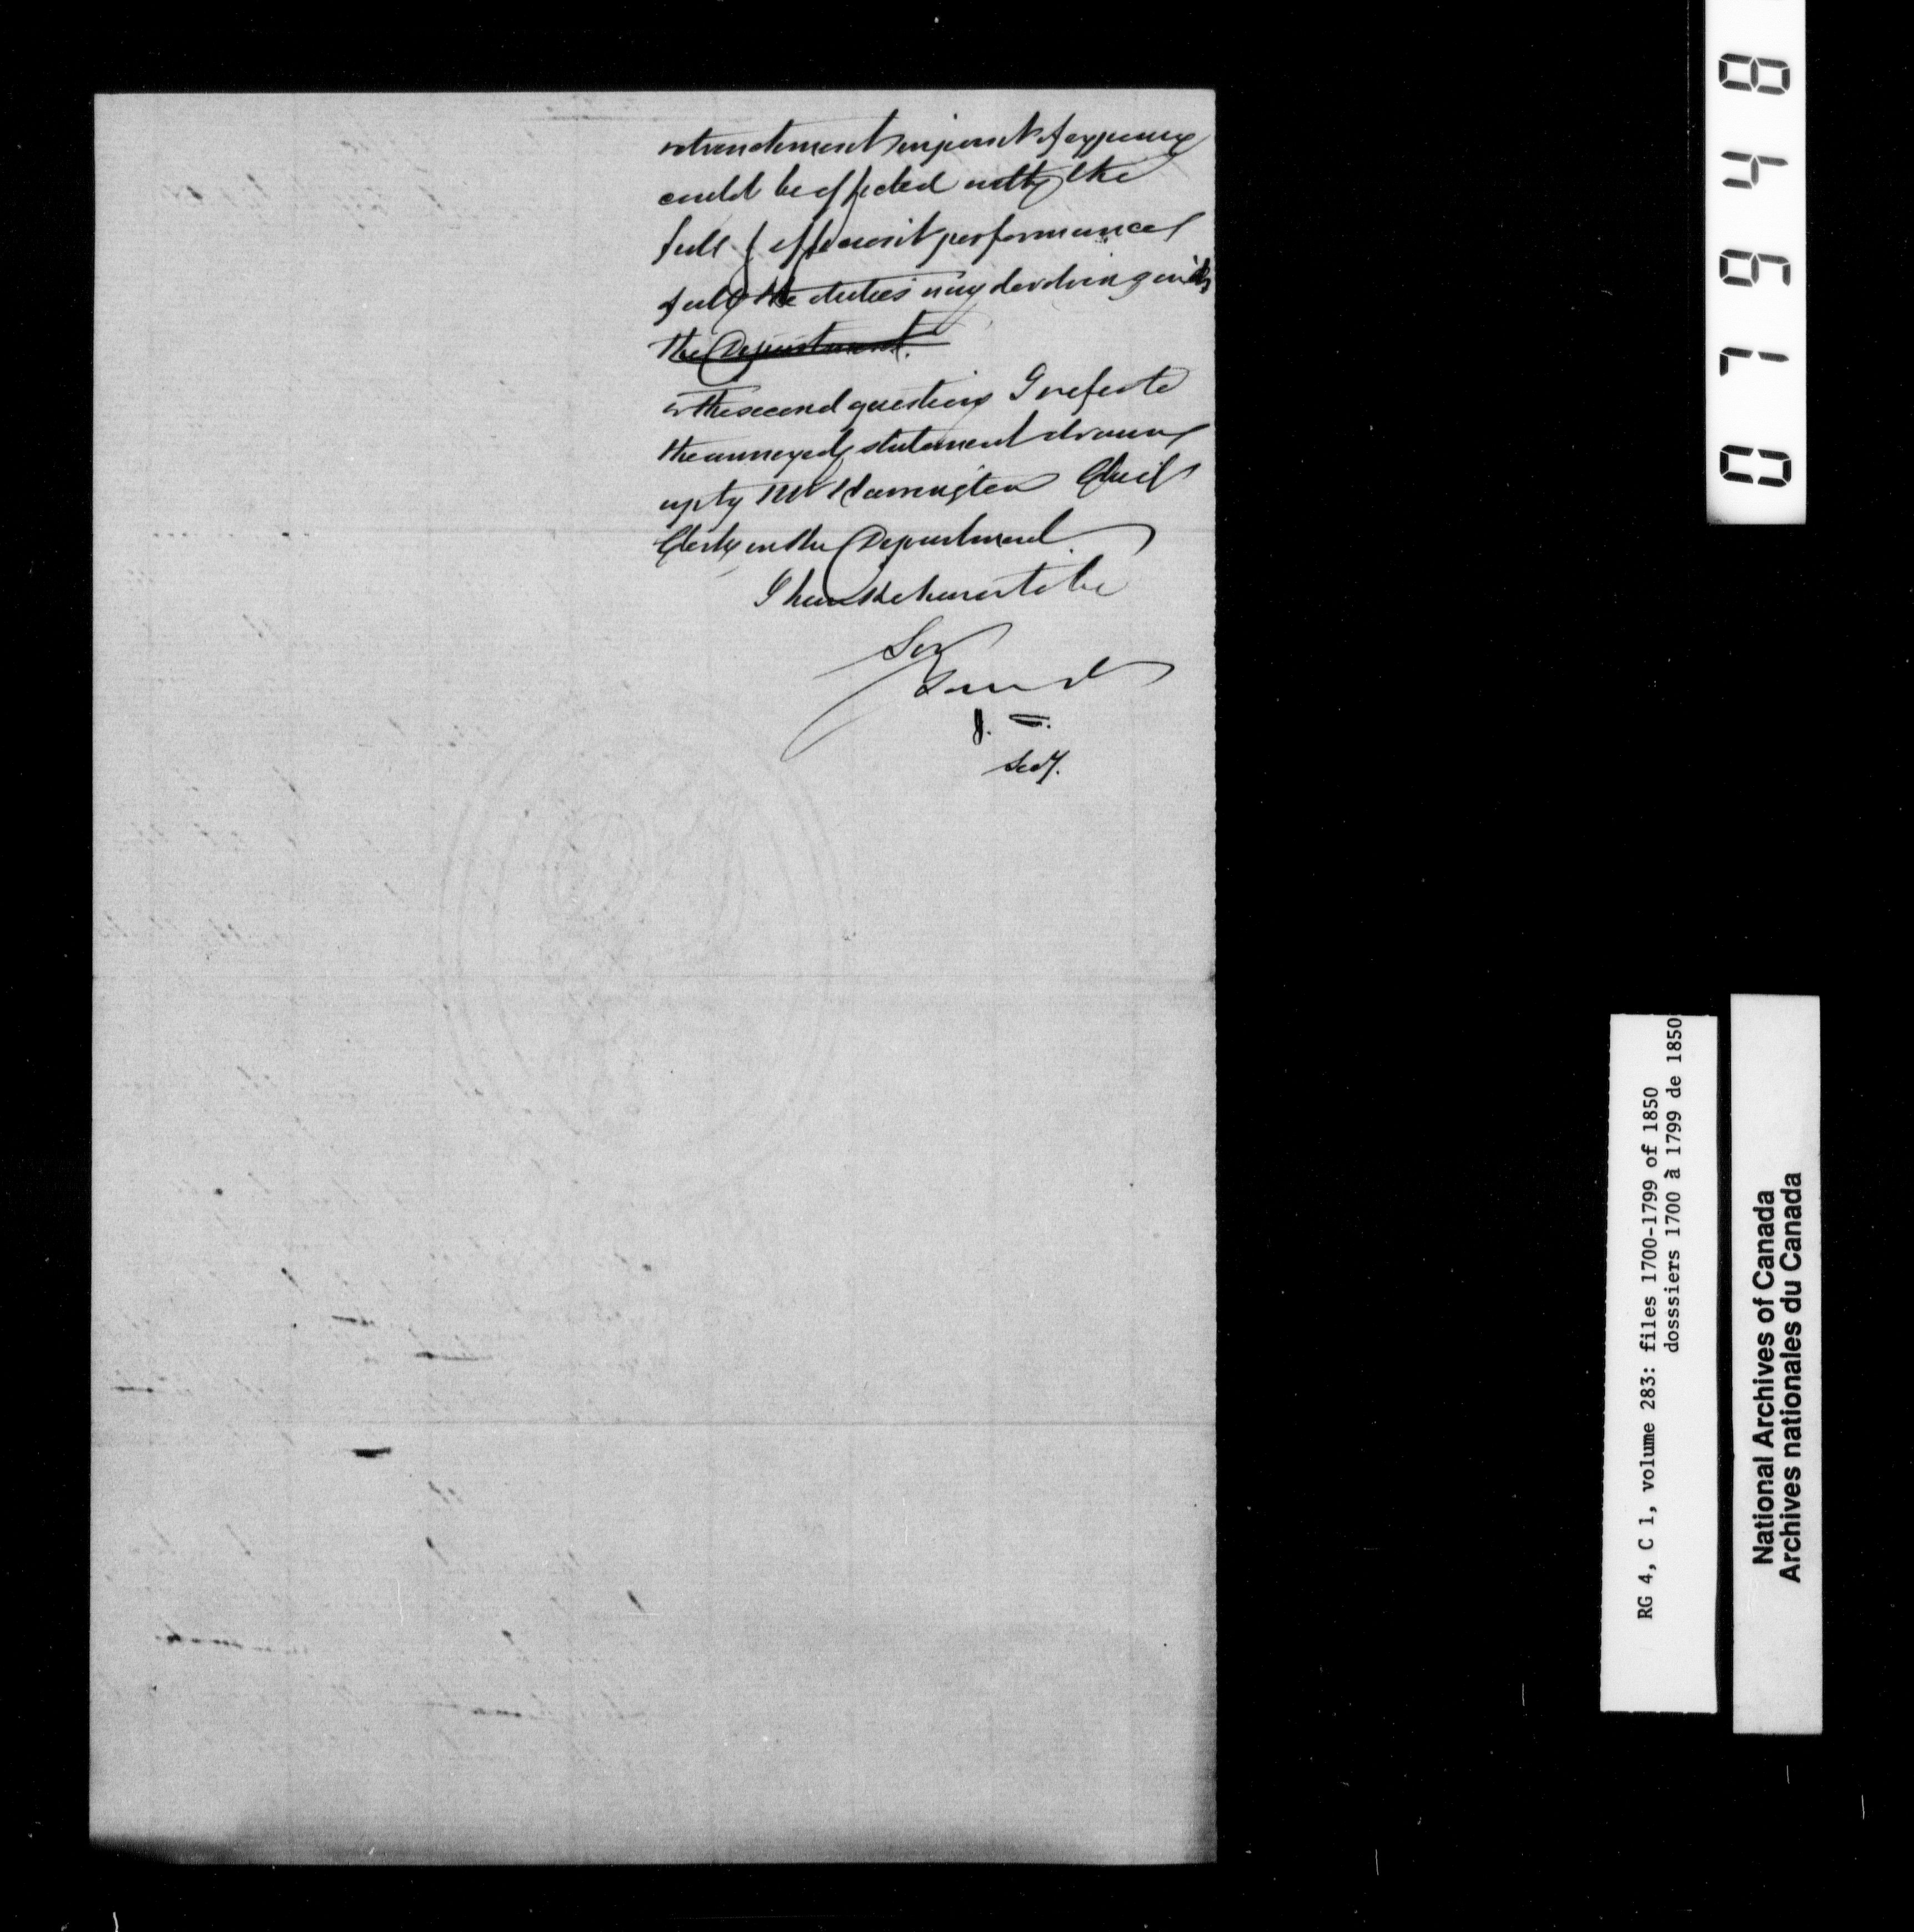 retrenchment in point of expense
could be effected with the
full & efficient performance
of all the duties now devolving
the Department.
the second question I refer to
the annexed statement drawn
up by Mr Harrington Chief
Clerk in the Department.
I have the honor to be
Sir
J.
Secy.
017648
RG 4, C 1, volume 283: files 1700-1799 of 1850
dosssiers 1700 à 1799 de 1850
National Archives of Canada
Archives nationales du Canada